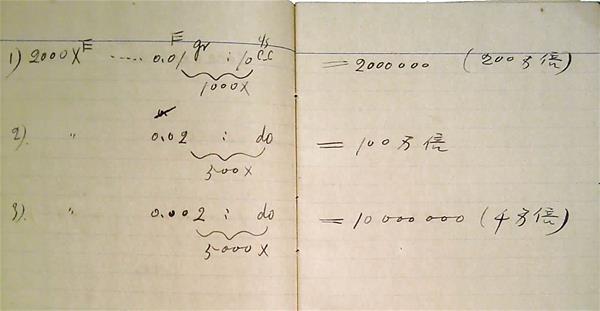 1) 2000X ‥‥‥ 0.01 gr : 10 c.c = 2000000 (200万倍)
1000X
2). 〃 0.02 : do = 100万倍
500X
3). 〃 0.002 : do = 10000000 (千万倍)
5000X